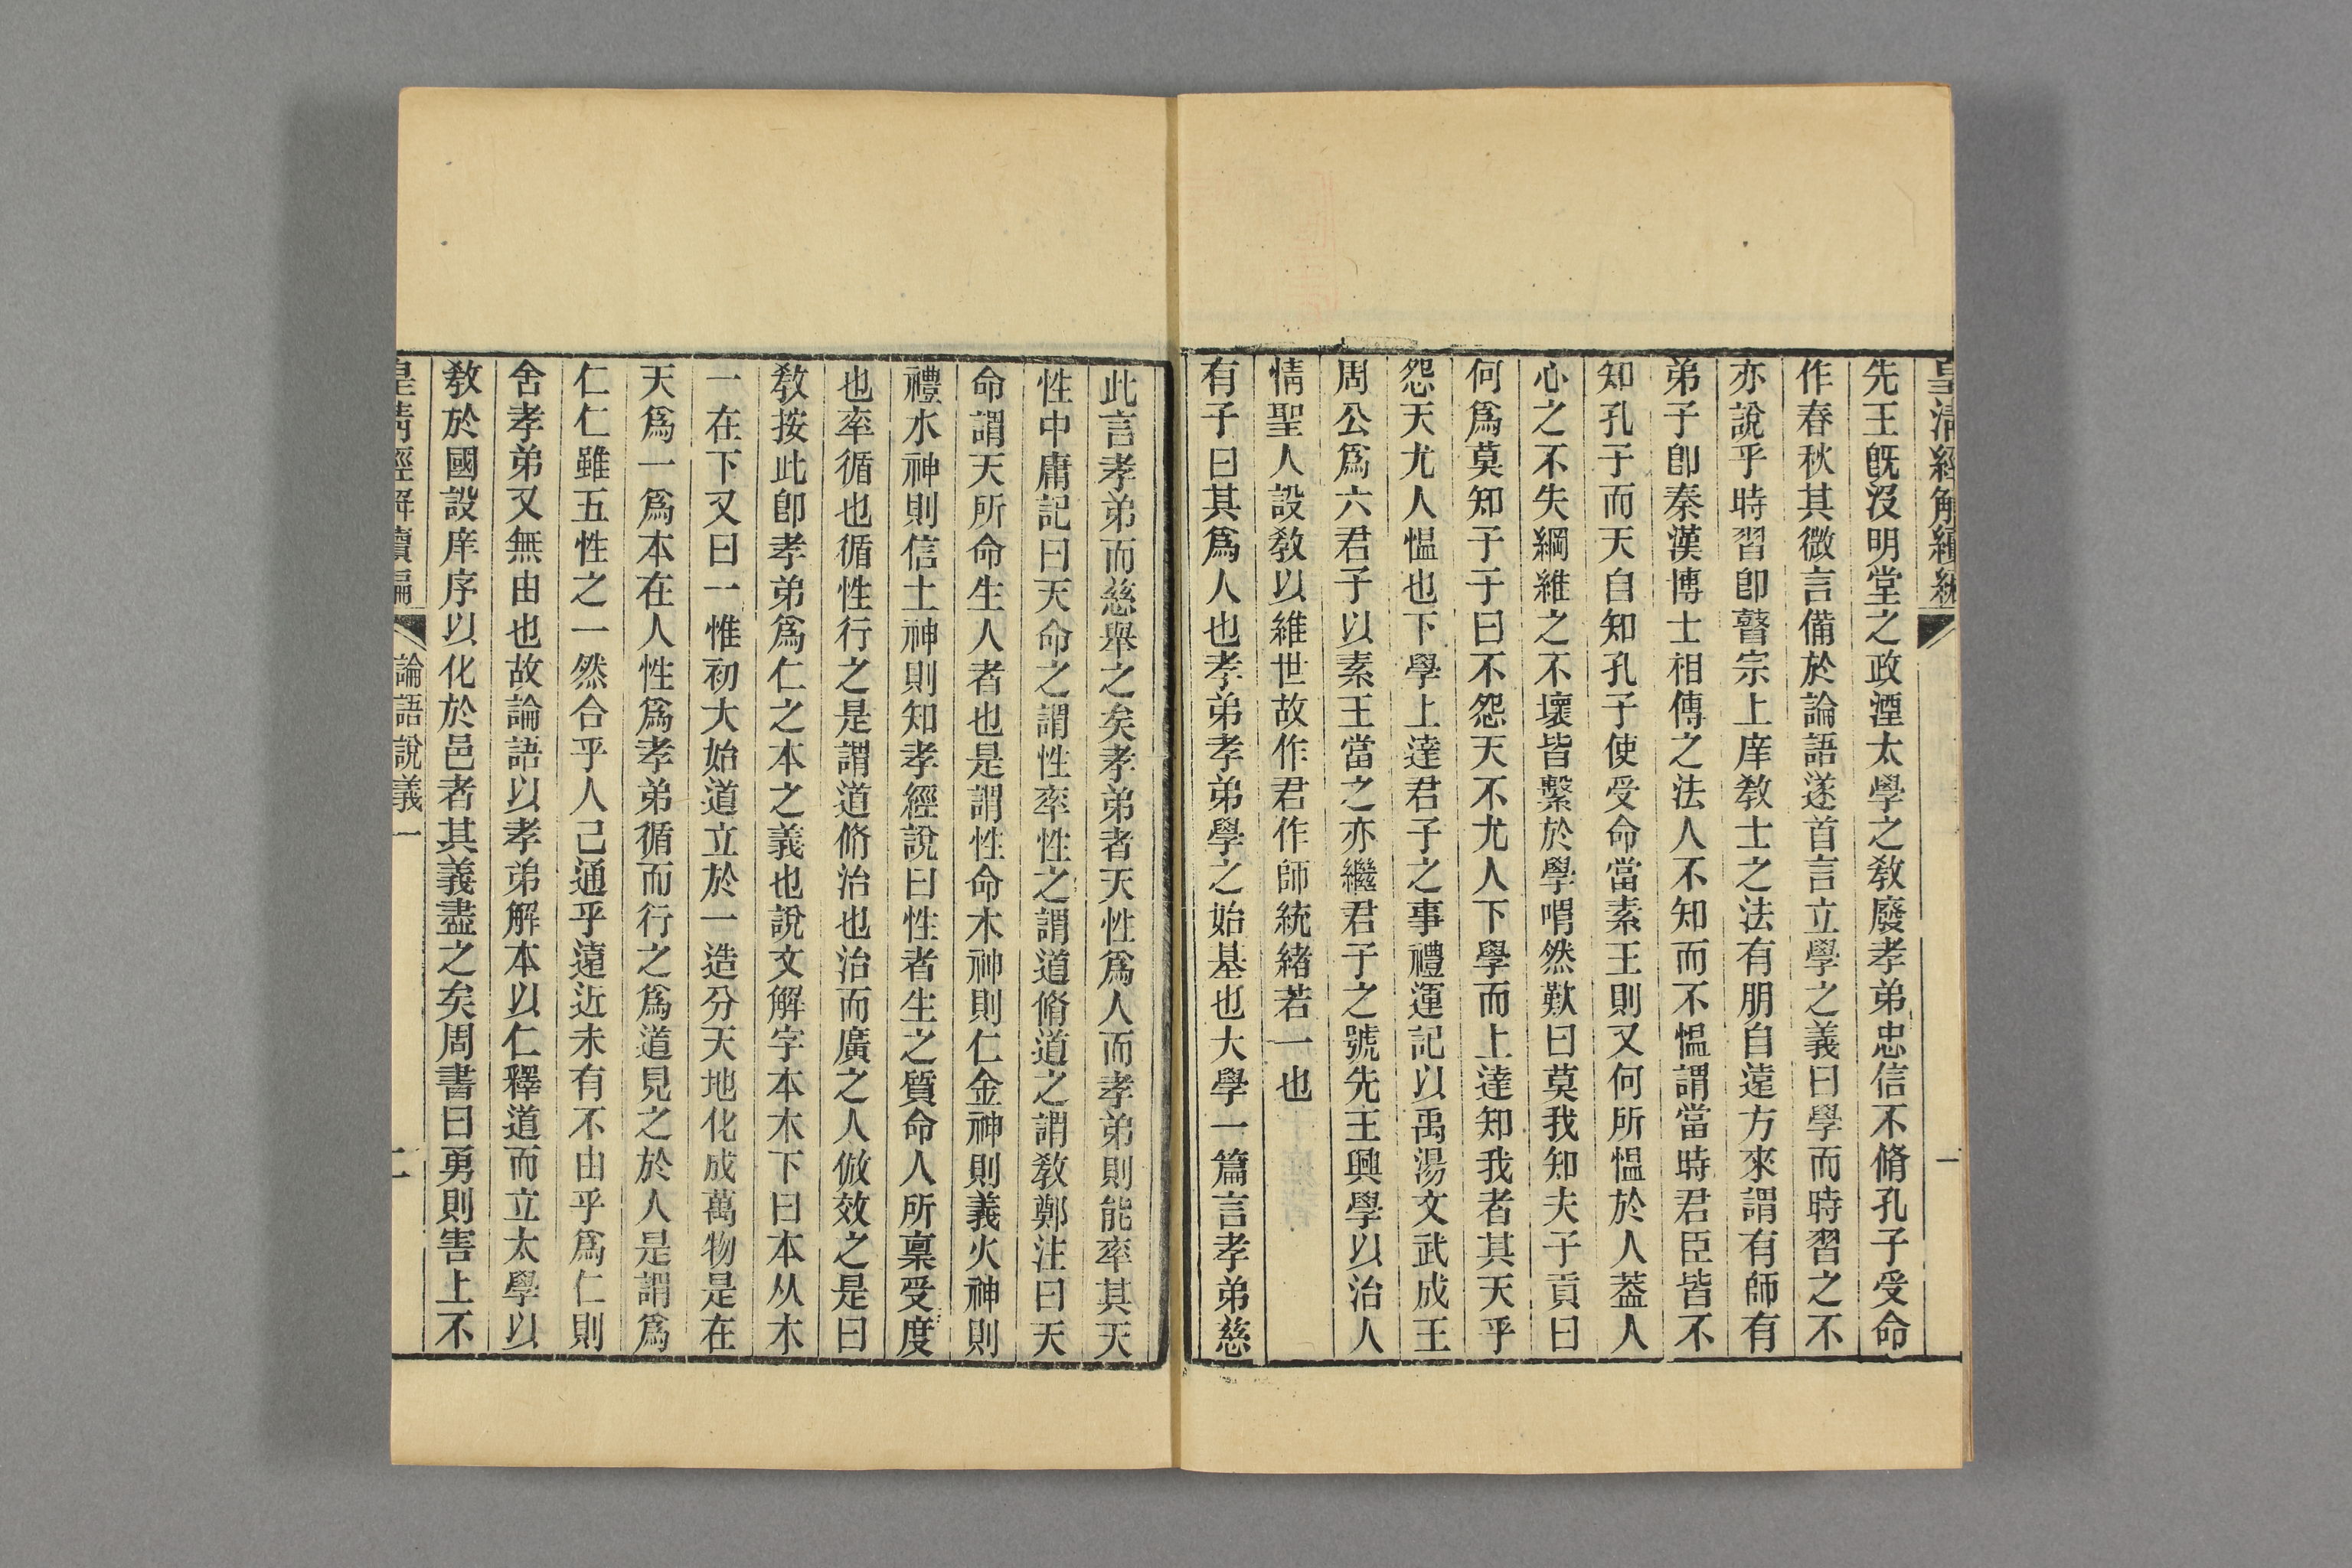 皇清經解續編
一
先王旣沒明堂之政湮太學之敎廢孝弟忠信不脩孔子受命
作春秋其微言備於論語遂首言立學之義曰學而時習之不
亦說乎時習卽瞽宗上庠敎士之法有朋自遠方來謂有師有
弟子卽秦漢博士相傳之法人不知而不慍謂當時君臣皆不
知孔子而天自知孔子使受命當素王則又何所慍於人葢人
心之不失綱維之不壞皆繫於學喟然歎曰莫我知夫子貢曰
何爲莫知子子曰不怨天不尤人下學而上達知我者其天乎
怨天尤人慍也下學上達君子之事禮運記以禹湯文武成王
周公爲六君子以素王當之亦繼君子之號先王興學以治人
情聖人設敎以維世故作君作師統緒若一也
有子曰其爲人也孝弟孝弟學之始基也大學一篇言孝弟慈
此言孝弟而慈舉之矣孝弟者天性爲人而孝弟則能率其天
性中庸記曰天命之謂性率性之謂道脩道之謂敎鄭注曰天
命謂天所命生人者也是謂性命木神則仁金神則義火神則
禮水神則信土神則知孝經說曰性者生之質命人所稟受度
也率循也循性行之是謂道脩治也治而廣之人倣效之是曰
敎按此卽孝弟爲仁之本之義也說文解字本木下曰本从木
一在下又曰一惟初大始道立於一造分天地化成萬物是在
天爲一爲本在人性爲孝弟循而行之爲道見之於人是謂爲
仁仁雖五性之一然合乎人己通乎遠近未有不由乎爲仁則
舍孝弟又無由也故論語以孝弟解本以仁釋道而立太學以
敎於國設庠序以化於邑者其義盡之矣周書曰勇則害上不
皇清經解續編
論語說義一
二